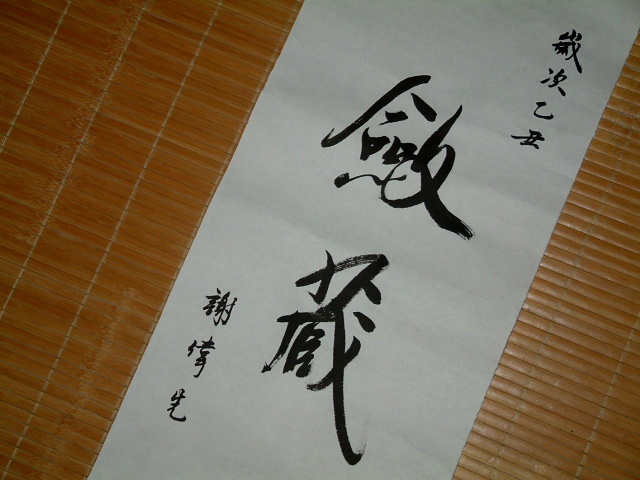 歲次乙丑
斂藏
謝偉先